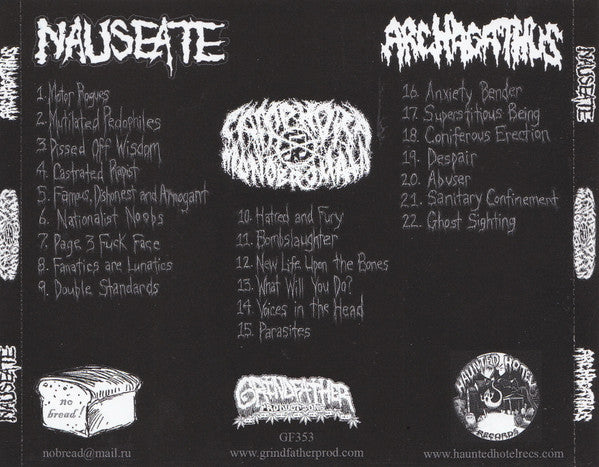 NAUSEATE
1. Motor Rogues
2. Mutilated Pedophiles
3. Pissed Off Wisdom
4. Castrated Rapist
5. Famous, Dishonest and Arrogant
6. Nationalist Noobs
7. Page 3 Fuck Face
8. Fanatics are Lunatics
9. Double Standards
CAMPHORA
MONOBROMATA
10. Hatred and Fury
11. Bombslaughter
12. New Life Upon the Bones
13. What Will You Do?
14. Voices in the Head
15. Parasites
ARCHAGATHUS
16. Anxiety Bender
17. Superstitious Being
18. Coniferous Erection
19. Despair
20. Abuser
21. Sanitary Confinement
22. Ghost Sighting
no
bread!
nobread@mail.ru
GRINDFATHER
PRODUCTIONS
GF353
www.grindfatherprod.com
HAUNTED HOTEL
RECORDS
www.hauntedhotelrecs.com
ARCHAGATHUS
NAUSEATE
NAUSEATE
ARCHAGATHUS